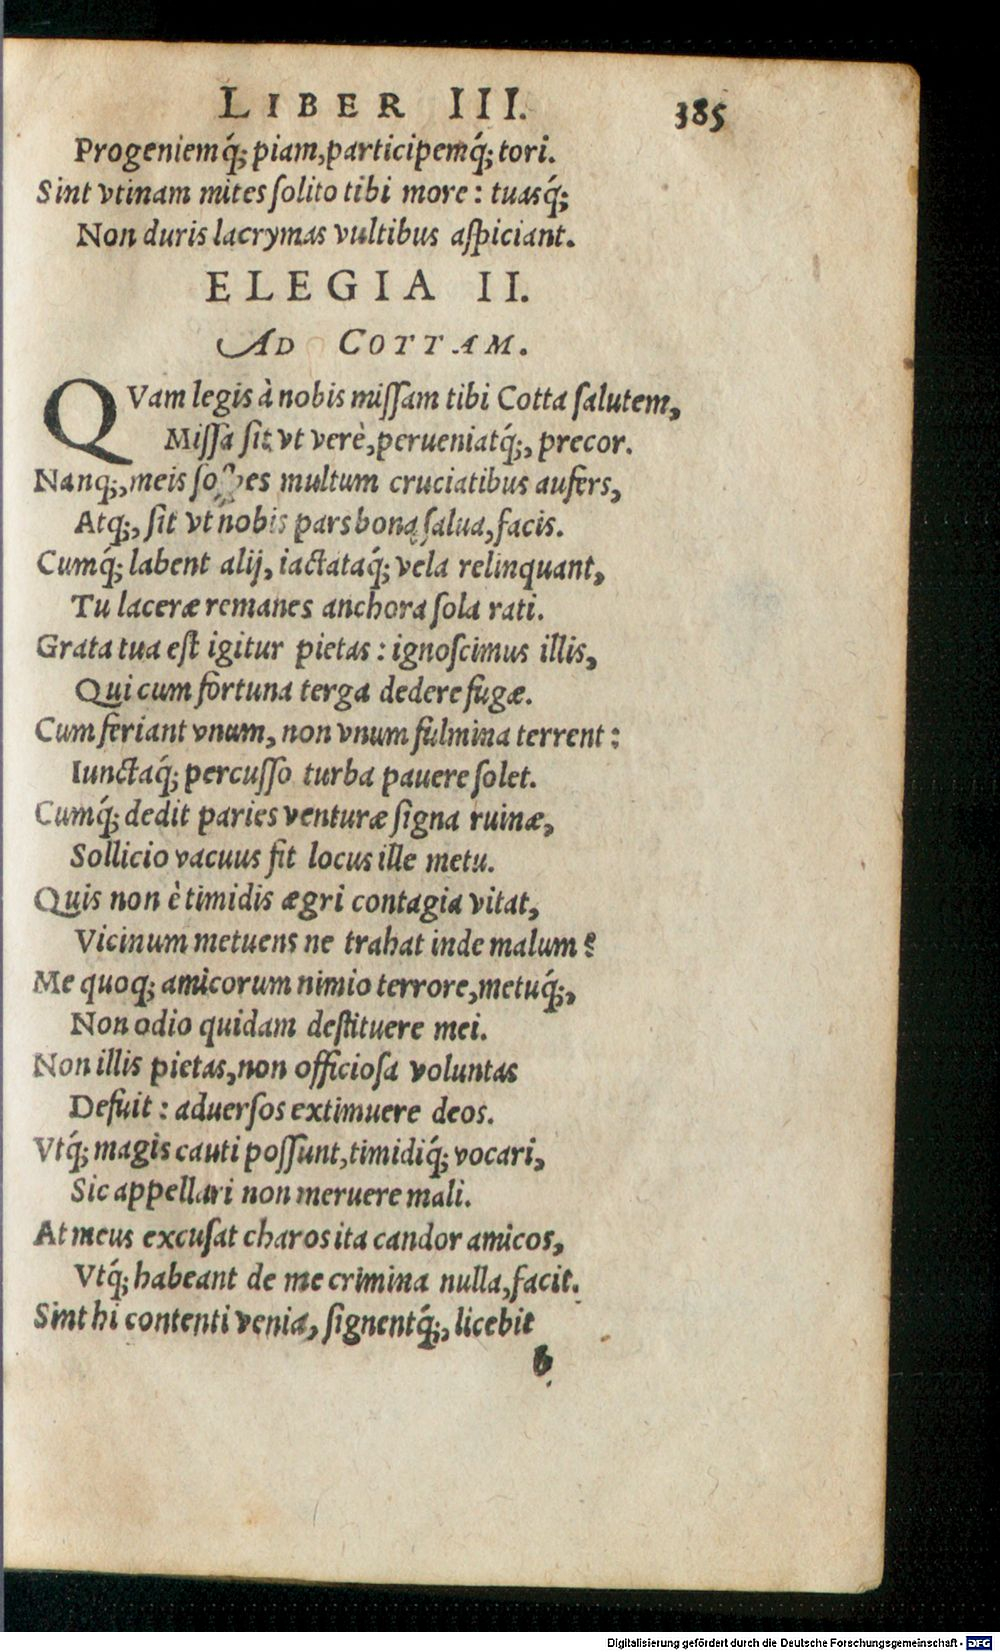 LIBER III. 385
Progeniemq́; piam, participemq́; tori.
Sint vtinam mites ſolito tibi more: tuasq́;
Non duris lacrymas vultibus aſpiciant.
ELEGIA II.
AD COTTAM.
QVam legis à nobis miſſam tibi Cotta ſalutem,
Miſſa ſit vt verè, perueniatq́;, precor.
Nanq;, meis ſoſpes multum cruciatibus aufers,
Atq;, ſit vt nobis pars bona ſalua, facis.
Cumq́; labent alij, iactataq́; vela relinquant,
Tu laceræ remanes anchora ſola rati.
Grata tua eſt igitur pietas: ignoſcimus illis,
Qui cum fortuna terga dedere fugæ.
Cum feriant vnum, non vnum fulmina terrent:
Iunctaq́; percuſſo turba pauere ſolet.
Cumq́; dedit paries venturæ ſigna ruinæ,
Sollicio vacuus fit locus ille metu.
Quis non è timidis ægri contagia vitat,
Vicinum metuens ne trahat inde malum?
Me quoq; amicorum nimio terrore, metuq́;,
Non odio quidam deſtituere mei.
Non illis pietas, non officioſa voluntas
Defuit: aduerſos extimuere deos.
Vtq́; magis cauti poſſunt, timidiq́; vocari,
Sic appellari non meruere mali.
At meus excuſat charos ita candor amicos,
Vtq́; habeant de me crimina nulla, facit.
Sint hi contenti venia, ſignentq́;, licebit
b
Digitalisierung gefördert durch die Deutsche Forschungsgemeinschaft - DFG